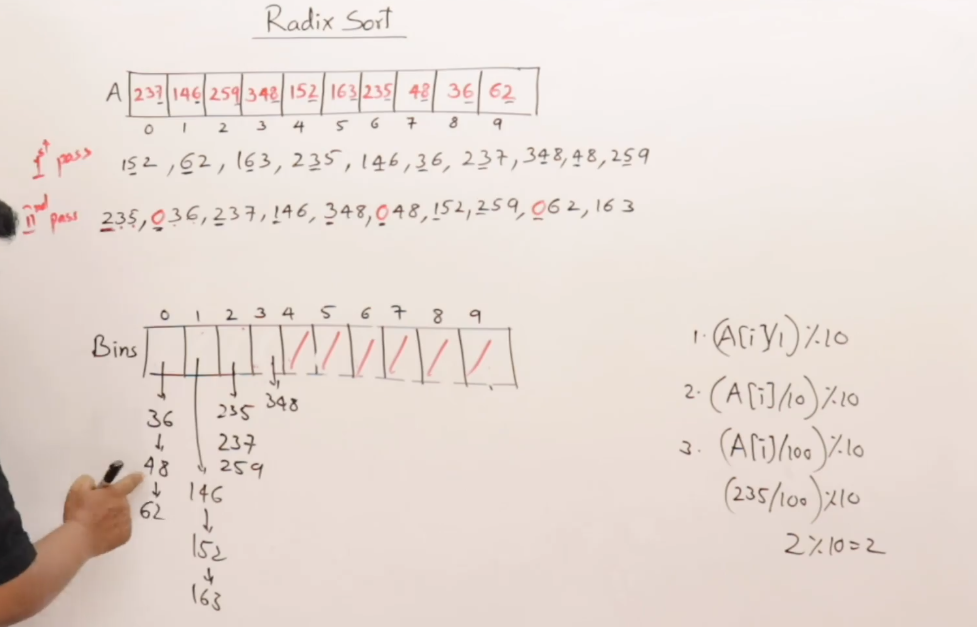 Radix Sort
A 237 146 259 348 152 163 235 48 36 62
0 1 2 3 4 5 6 7 8 9
1st pass 152, 62, 163, 235, 146, 36, 237, 348, 48, 259
IInd pass 235, 036, 237, 146, 348, 048, 152, 259, 062, 163
0 1 2 3 4 5 6 7 8 9
Bins
36 235 348
237
48 259
62 146
152
163
1. (A[i]/1)%10
2. (A[i]/10)%10
3. (A[i]/100)%10
(235/100)%10
2%10=2